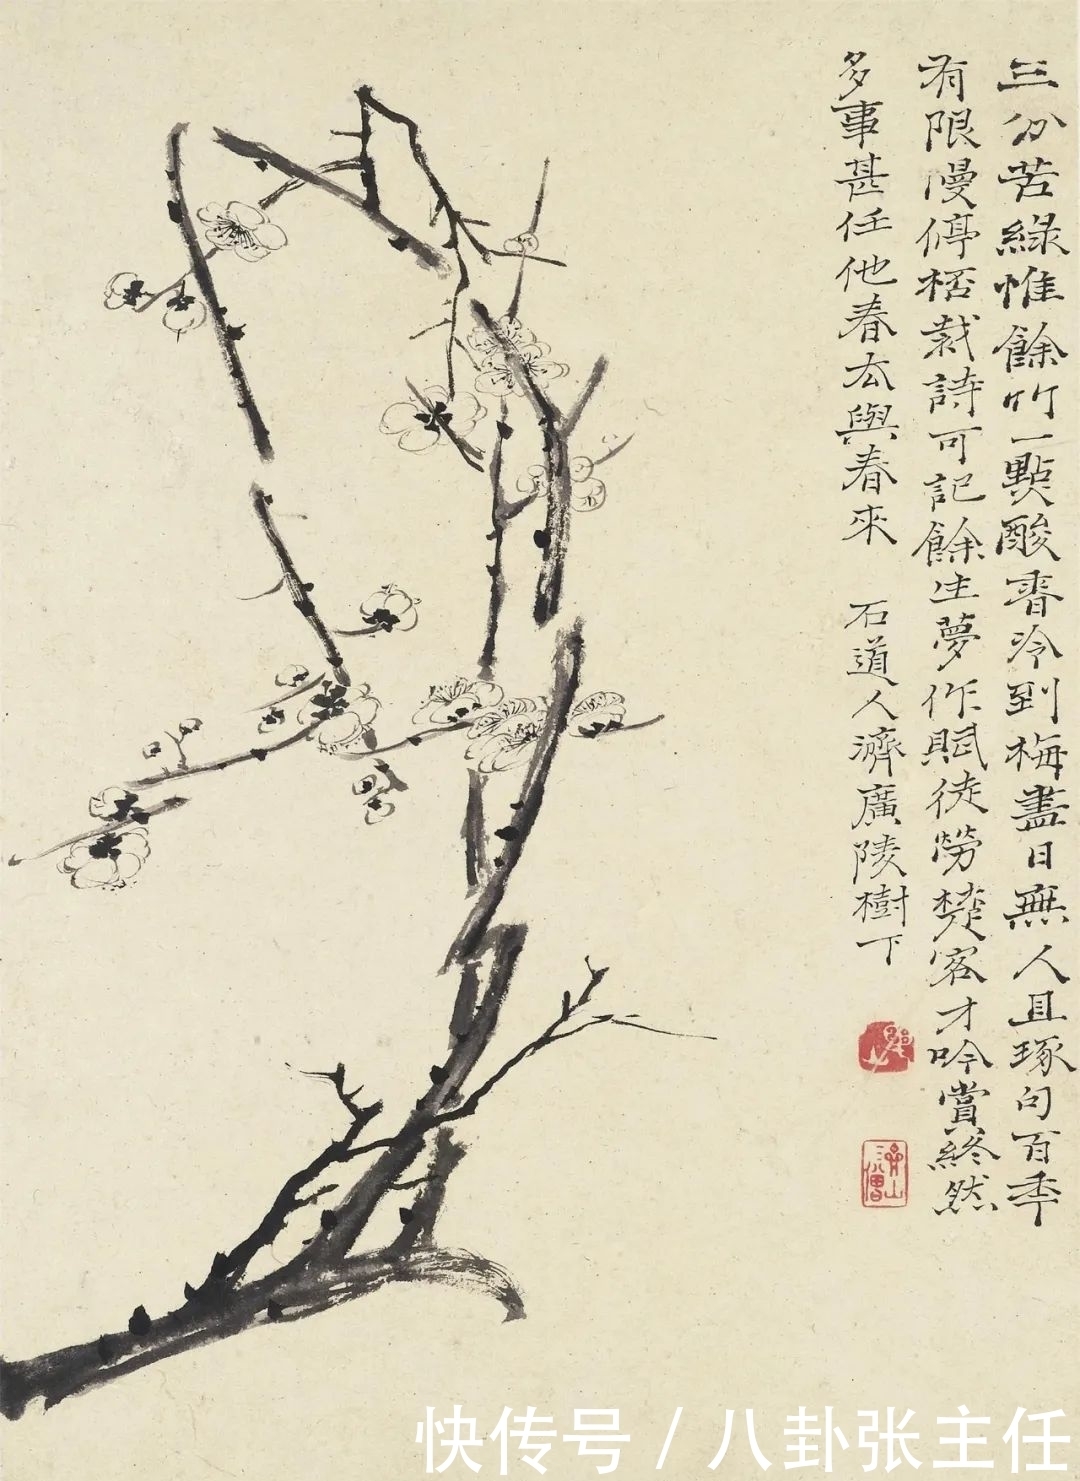 三分苦綠惟餘竹一點酸香冷到梅盡日無人且琢句百秊
有限慢停桮裁詩可記餘生夢作賦徒勞楚客才吟賞終然
多事甚任他春去與春來 石道人濟廣陵樹下
快传号 / 八卦张主任